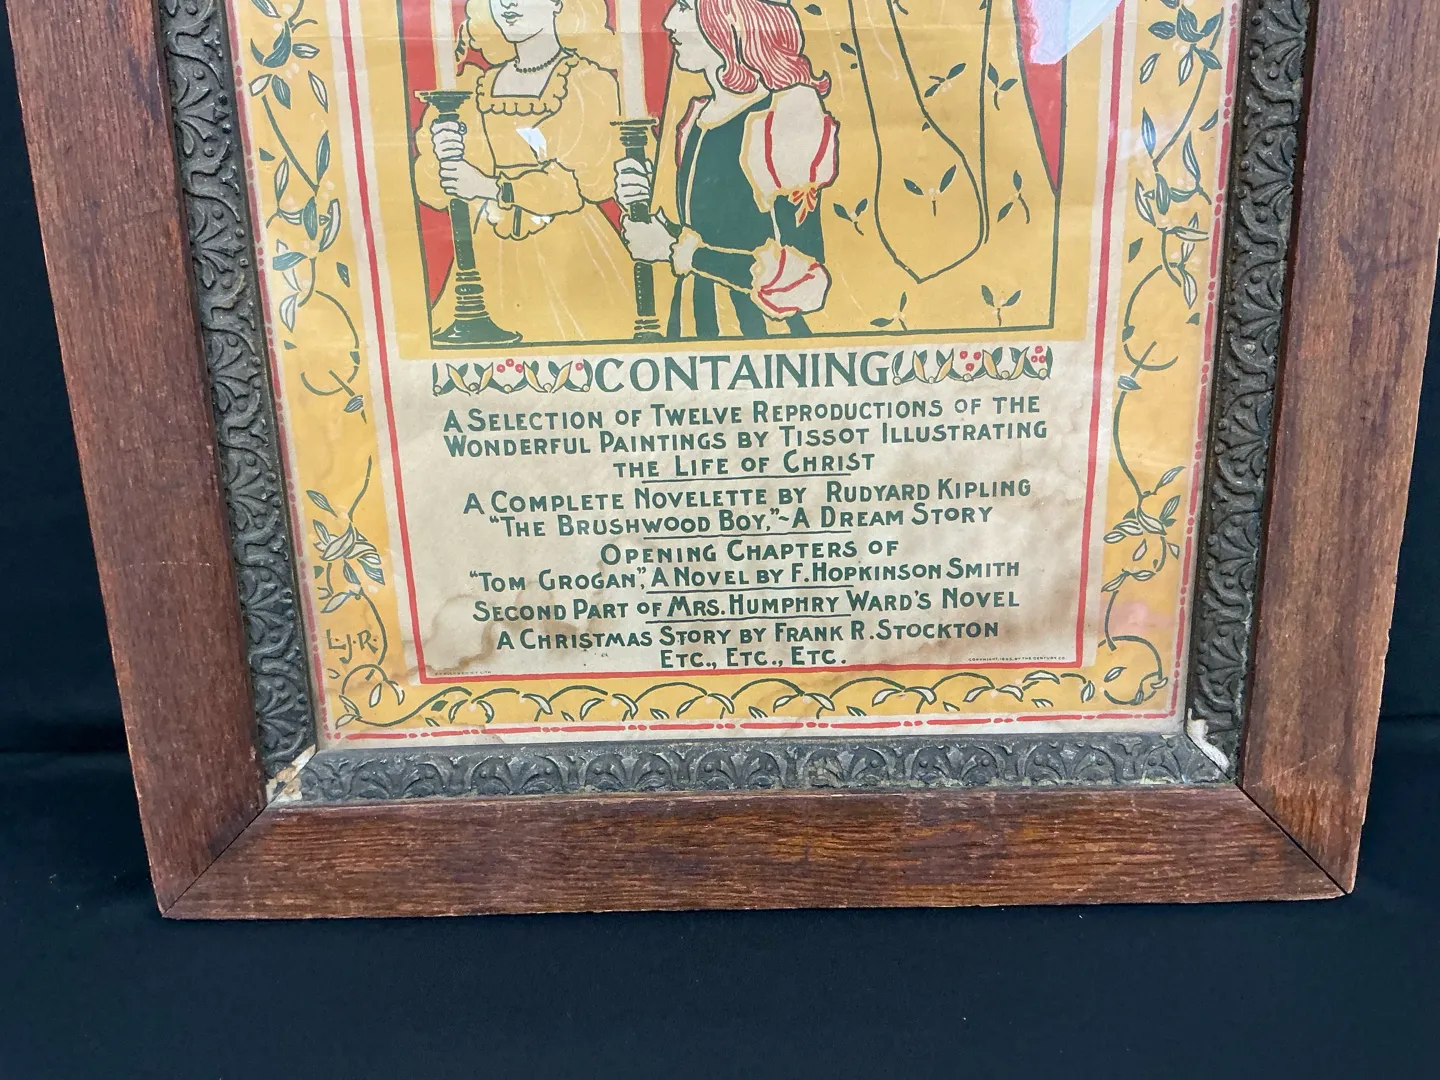 CONTAINING
A SELECTION OF TWELVE REPRODUCTIONS OF THE
WONDERFUL PAINTINGS BY TISSOT ILLUSTRATING
THE LIFE OF CHRIST
A COMPLETE NOVELETTE BY RUDYARD KIPLING
"THE BRUSHWOOD BOY,"~A DREAM STORY
OPENING CHAPTERS OF
"TOM GROGAN", A NOVEL BY F. HOPKINSON SMITH
SECOND PART OF MRS. HUMPHRY WARD'S NOVEL
A CHRISTMAS STORY BY FRANK R. STOCKTON
ETC., ETC., ETC.
L.J.R.